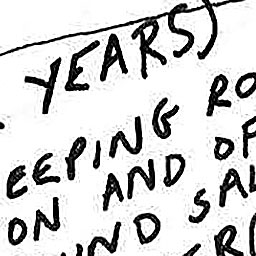 YEARS)
EEPING RO
ON AND OF
UND SA
ER